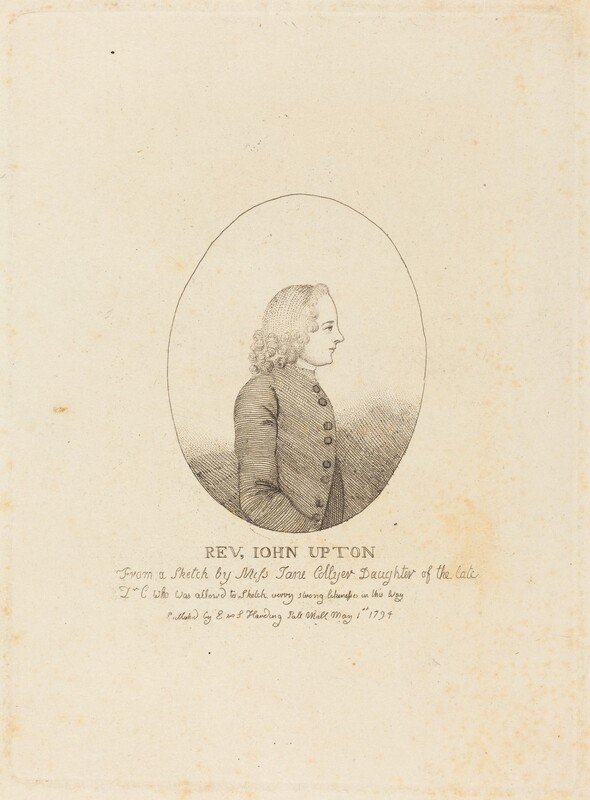 REV, IOHN UPTON
From a Sketch by Miss Jane Collyer Daughter of the late
Dr C who was allowed to Sketch verry strong likenesses in this way
Published by E & S Harding Pall Mall May 1st 1794